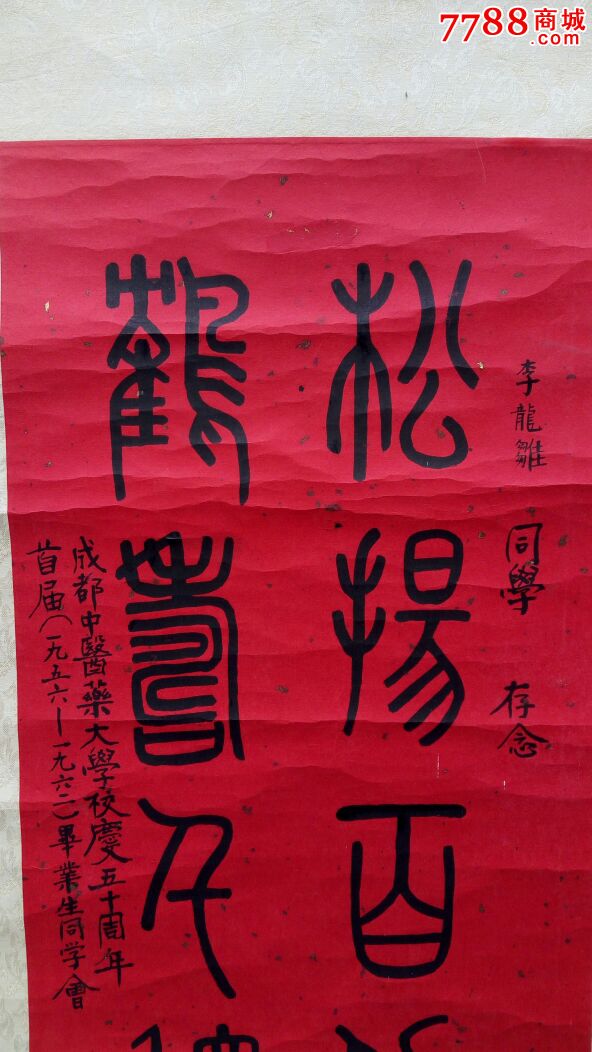 7788商城
.com
李龍雛 同學 存念
松揚百
鶴壽千
成都中醫藥大學校慶五十周年
首届(一九五六—一九六二)畢業生同学會